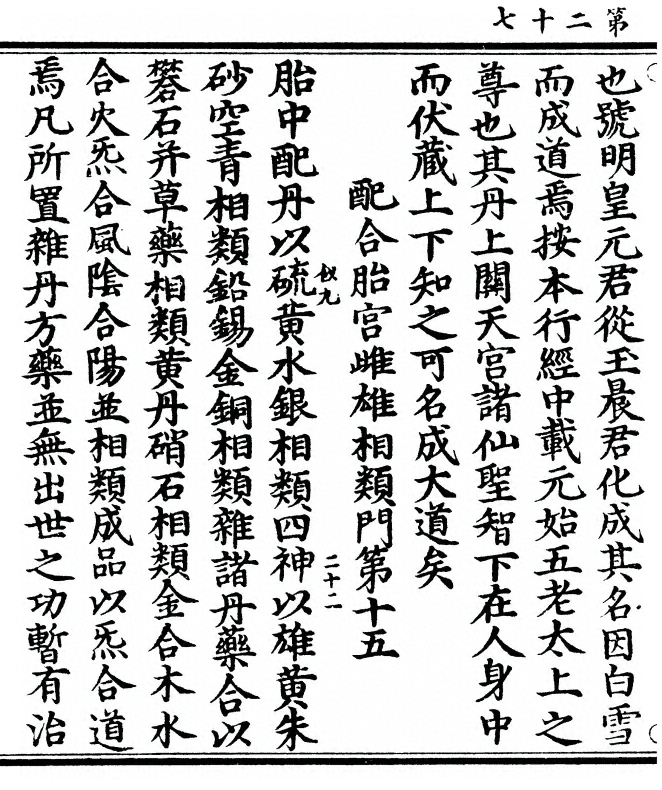 第二十七
也號明皇元君從玉晨君化成其名因白雪
而成道焉按本行經中載元始五老太上之
尊也其丹上關天宮諸仙聖智下在人身中
而伏藏上下知之可名成大道矣
配合胎宮雌雄相類門第十五
二十二
胎中配丹以硫黃水銀相類四神以雄黃朱
砂空青相類鉛錫金銅相類雜諸丹藥合以
礬石并草藥相類黃丹硝石相類金合木水
合火炁合風陰合陽並相類成品以炁合道
焉凡所置雜丹方藥並無出世之功暫有治